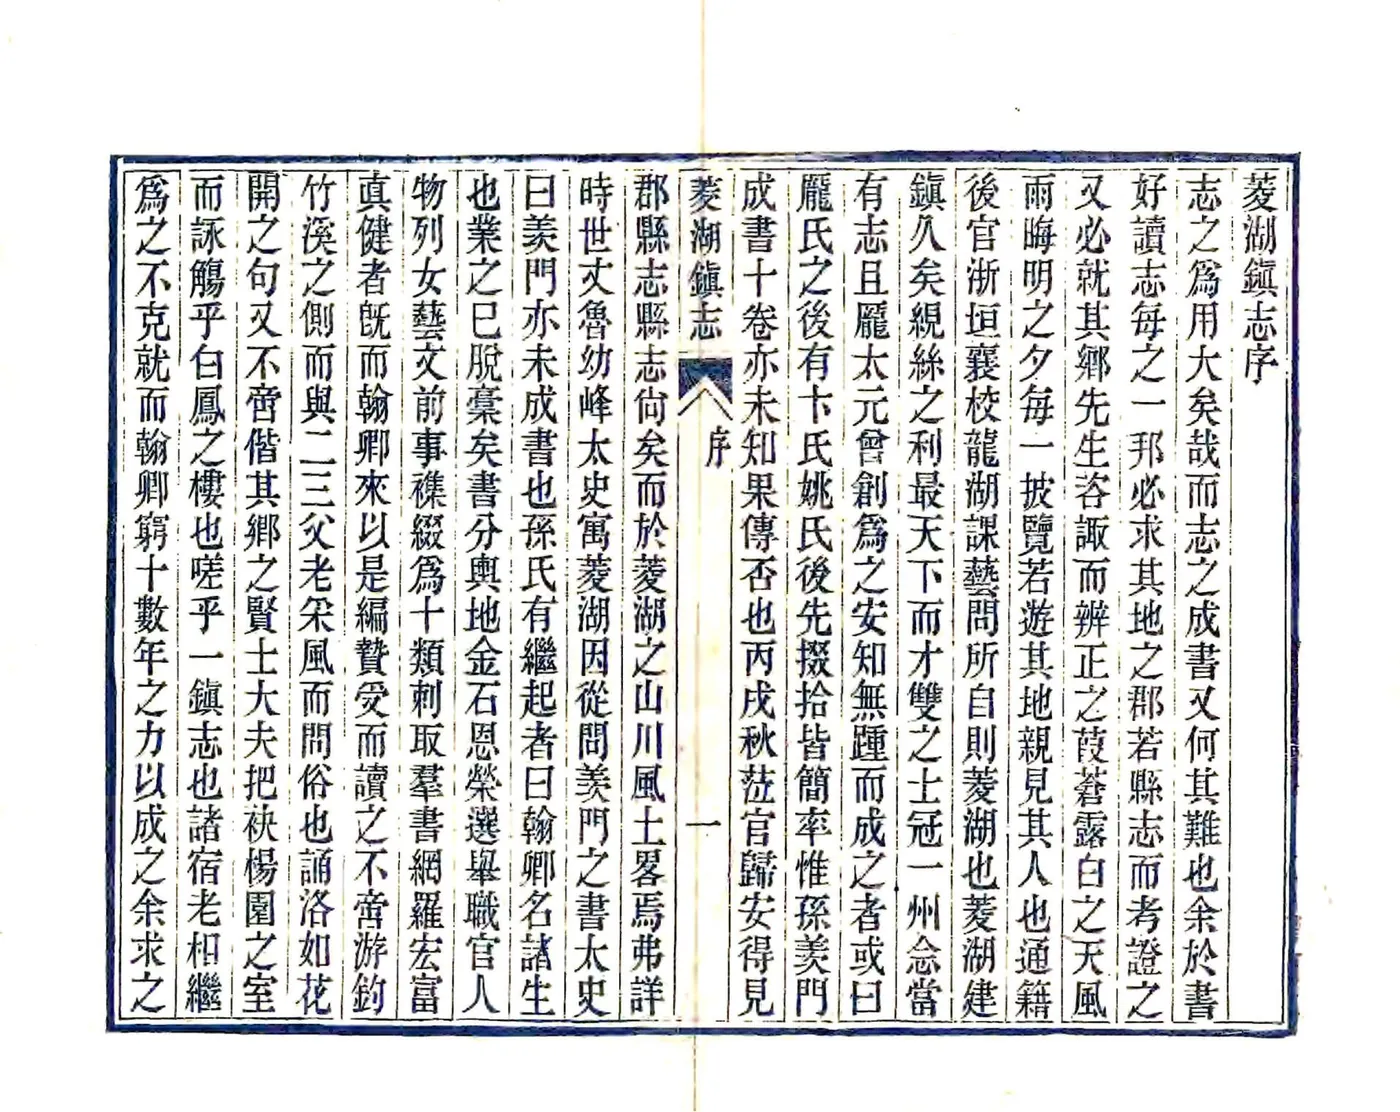 菱湖鎭志序
志之爲用大矣哉而志之成書又何其難也余於書
好讀志每之一邦必求其地之郡若縣志而考證之
又必就其鄉先生咨諏而辨正之葭蒼露白之天風
雨晦明之夕每一披覽若遊其地親見其人也通籍
後官浙垣襄校龍湖課藝問所自則菱湖也菱湖建
鎭久矣緄絲之利最天下而才雙之士冠一州念當
有志且龎太元曾創爲之安知無踵而成之者或曰
龎氏之後有卞氏姚氏後先掇拾皆簡率惟孫羨門
成書十卷亦未知果傳否也丙戌秋莅官歸安得見
菱湖鎭志
序
一
郡縣志縣志尙矣而於菱湖之山川風土畧焉弗詳
時世丈魯幼峰太史寓菱湖因從問羨門之書太史
曰羨門亦未成書也孫氏有繼起者曰翰卿名諸生
也業之已脫稾矣書分輿地金石恩榮選舉職官人
物列女藝文前事襍綴爲十類刺取羣書網羅宏富
真健者旣而翰卿來以是編贄受而讀之不啻游釣
竹溪之側而與二三父老采風而問俗也誦洛如花
開之句又不啻偕其鄉之賢士大夫把袂楊園之室
而詠觴乎白鳳之樓也嗟乎一鎭志也諸宿老相繼
爲之不克就而翰卿窮十數年之力以成之余求之